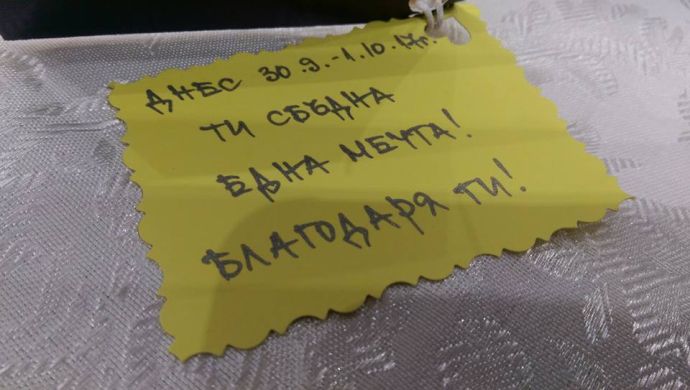 ДНЕС 30.9.-1.10.17г.
ТИ СБЪДНА
ЕДНА МЕЧТА!
БЛАГОДАРЯ ТИ!